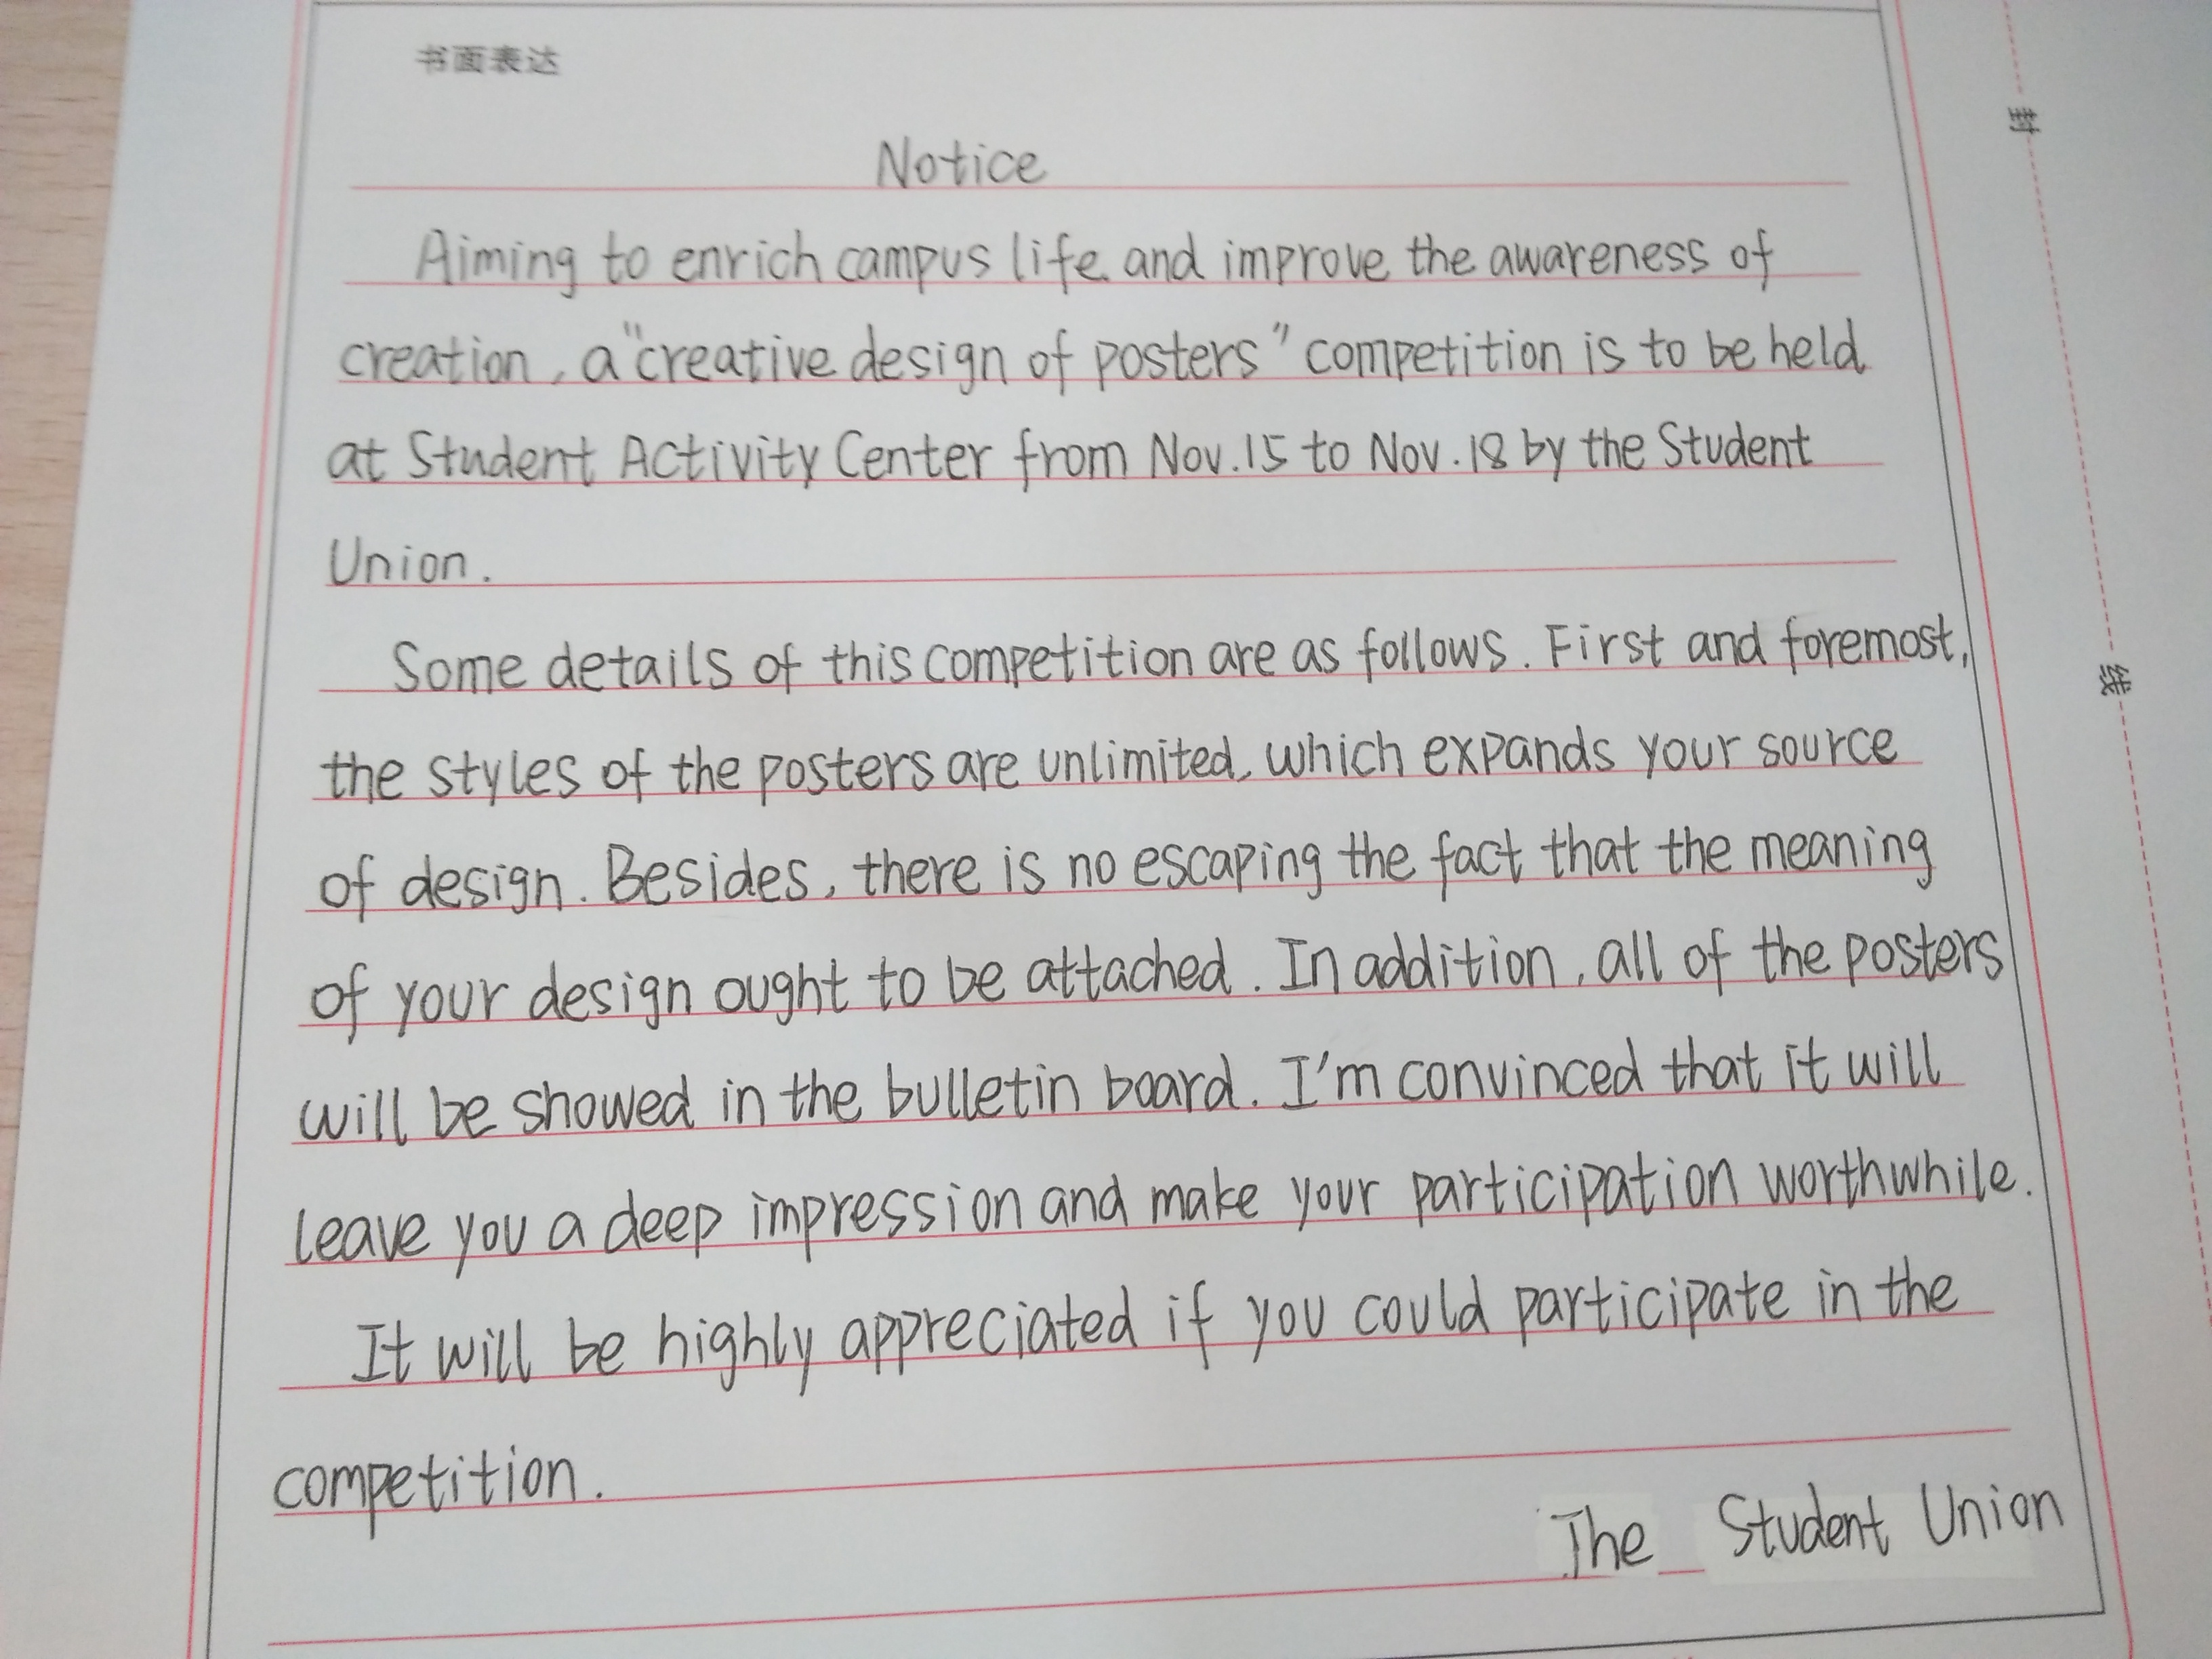 书面表达
封
Notice
Aiming to enrich campus life and improve the awareness of
creation, a "creative design of posters" competition is to be held
at Student Activity Center from Nov.15 to Nov.18 by the Student
Union.
Some details of this competition are as follows. First and foremost,
线
the styles of the posters are unlimited, which expands your source
of design. Besides, there is no escaping the fact that the meaning
of your design ought to be attached. In addition, all of the posters
will be showed in the bulletin board. I'm convinced that it will
leave you a deep impression and make your participation worthwhile.
It will be highly appreciated if you could participate in the
competition.
The Student Union